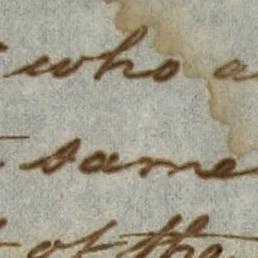 who a
same
of the